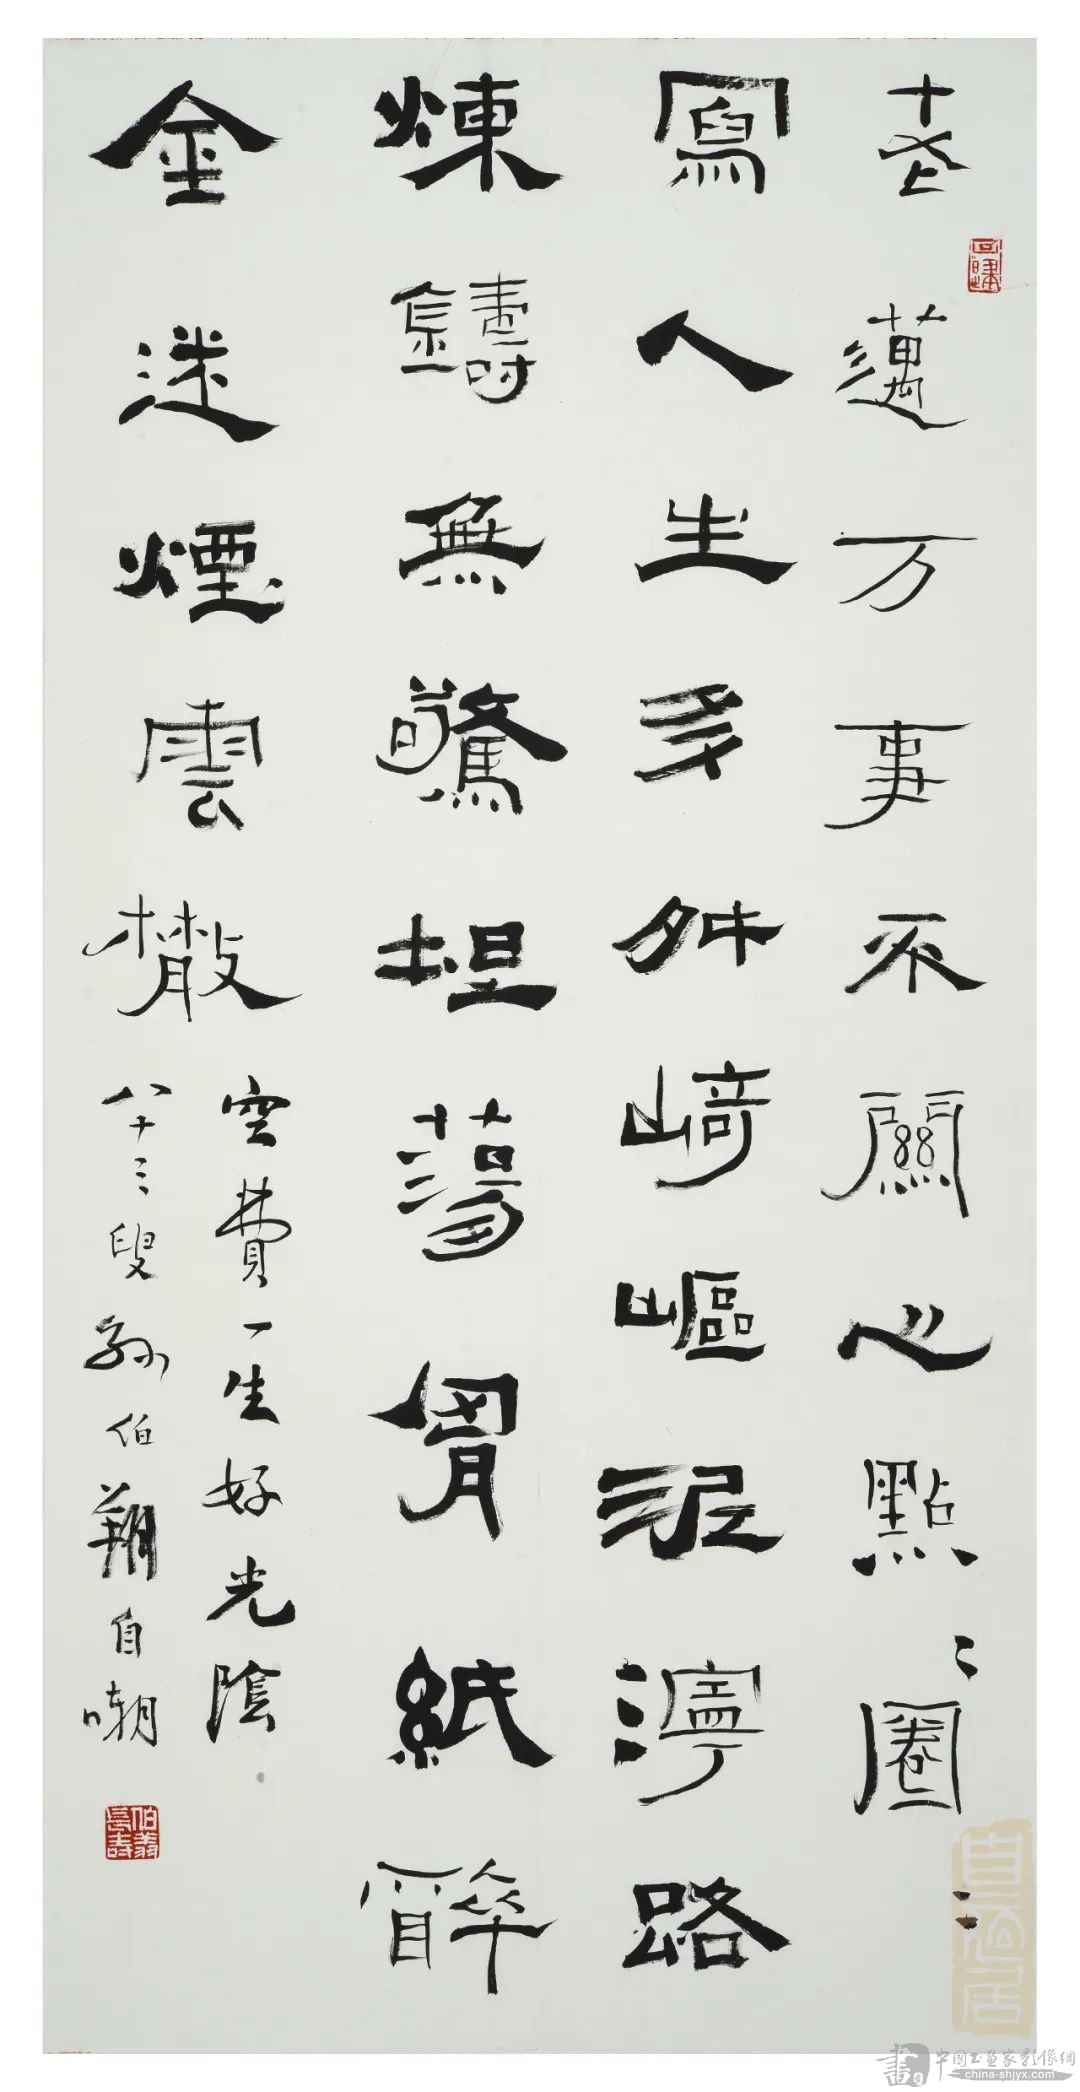 老邁万事不關心點〻圈〻
寫人生多舛崎嶇泥濘路
煉鑄無驚坦蕩胷紙醉
金迷煙雲散
空費一生好光陰
八十三叟孫伯翔自嘲
中國书画家影像網
china-shjyx.com